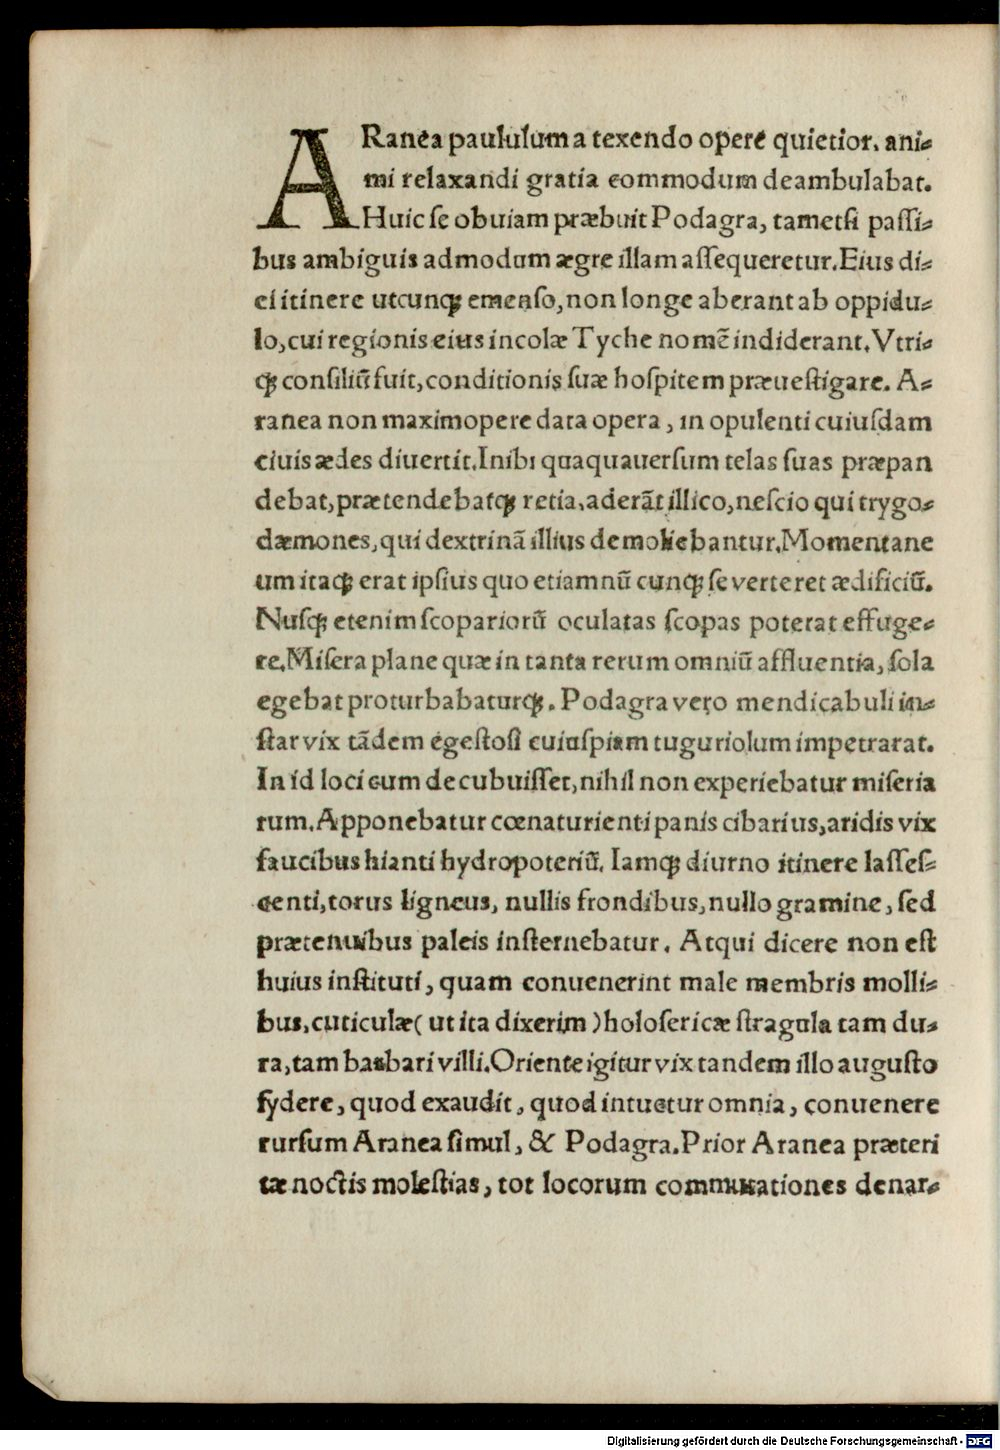 ARanea paululum a texendo opere quietior, ani⸗
mi relaxandi gratia commodum deambulabat.
Huic se obuiam præbuit Podagra, tametsi passi⸗
bus ambiguis admodum ægre illam assequeretur. Eius di⸗
ei itinere utcunqꝫ emenso, non longe aberant ab oppidu⸗
lo, cui regionis eius incolæ Tyche nomē indiderant. Vtri⸗
qꝫ consiliū fuit, conditionis suæ hospitem præuestigare. A⸗
ranea non maximopere data opera, in opulenti cuiusdam
ciuis ædes diuertit. Inibi quaquauersum telas suas præpan
debat, prætendebatqꝫ retia, aderāt illico, nescio qui trygo⸗
dæmones, qui dextrinā illius demoliebantur. Momentane
um itaqꝫ erat ipsius quo etiamnū cunqꝫ se verteret ædificiū.
Nusqꝫ etenim scopariorū oculatas scopas poterat effuge⸗
re. Misera plane quæ in tanta rerum omniū affluentia, sola
egebat proturbabaturqꝫ. Podagra vero mendicabuli in⸗
star vix tādem egestosi cuiuspiam tuguriolum impetrarat.
In id loci cum decubuisset, nihil non experiebatur miseria
rum. Apponebatur cœnaturienti panis cibarius, aridis vix
faucibus hianti hydropoteriū. Iamqꝫ diurno itinere lasses⸗
centi, torus ligneus, nullis frondibus, nullo gramine, sed
prætenuibus paleis insternebatur. Atqui dicere non est
huius instituti, quam conuenerint male membris molli⸗
bus, cuticulæ (ut ita dixerim) holosericæ stragula tam du⸗
ra, tam barbari villi. Oriente igitur vix tandem illo augusto
sydere, quod exaudit, quod intuetur omnia, conuenere
rursum Aranea simul, & Podagra. Prior Aranea præteri
tæ noctis molestias, tot locorum commutationes denar⸗
Digitalisierung gefördert durch die Deutsche Forschungsgemeinschaft - DFG